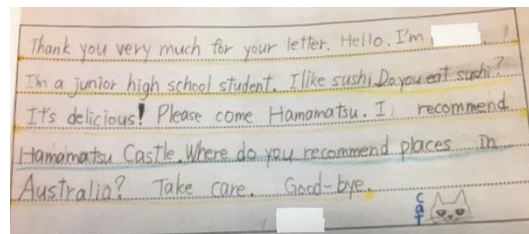 Thank you very much for your letter. Hello. I'm
I'm a junior high school student. I like sushi. Do you eat sushi?
It's delicious! Please come Hamamatsu. I recommend
Hamamatsu Castle. Where do you recommend places in
Australia? Take care. Good-bye.
cat